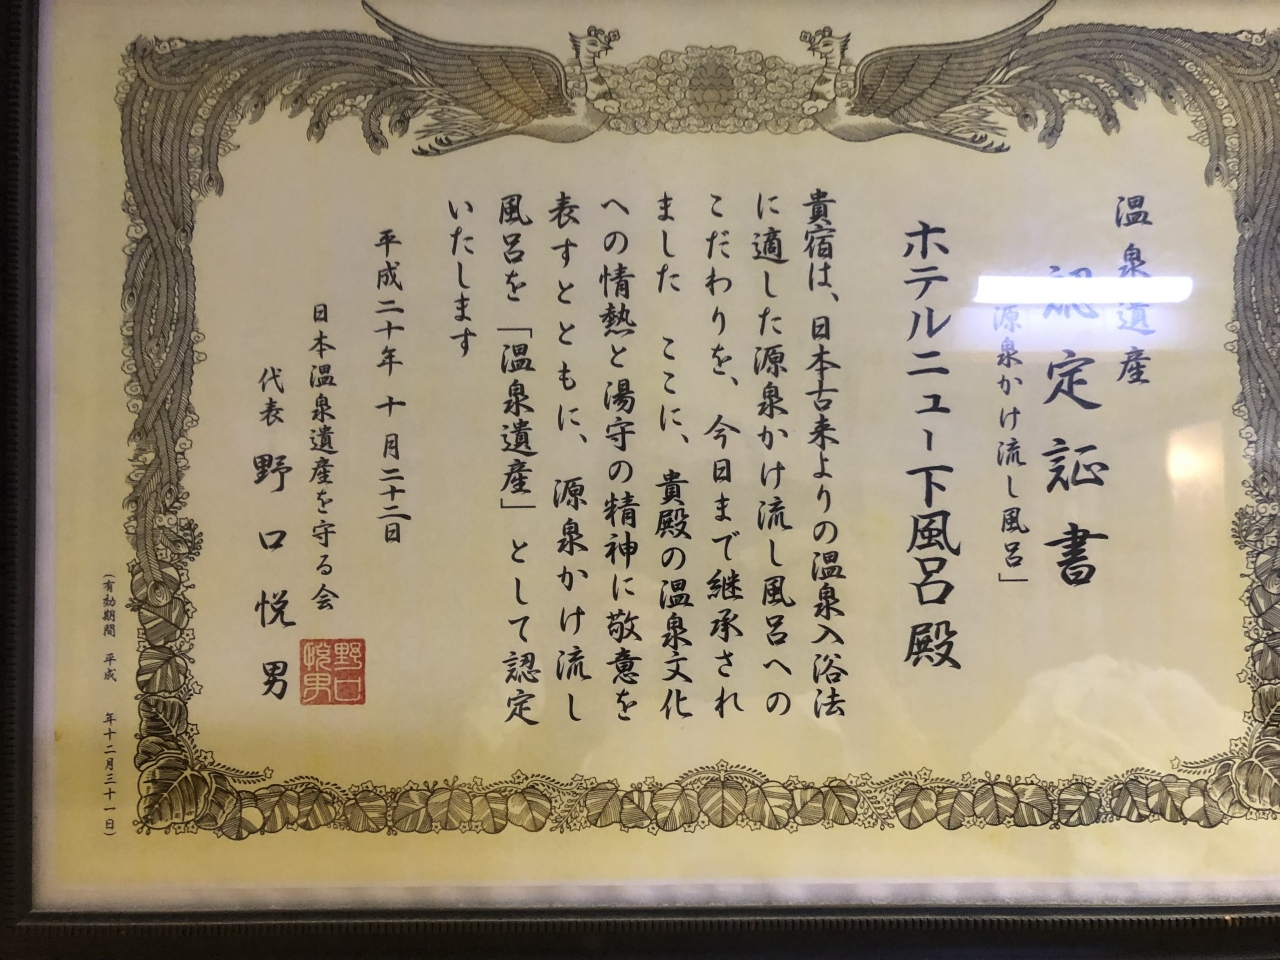 温泉遺産
認定証書
源泉かけ流し風呂」
ホテルニュー下風呂殿
貴宿は、日本古来よりの温泉入浴法
に適した源泉かけ流し風呂への
こだわりを、今日まで継承され
ました ここに、貴殿の温泉文化
への情熱と湯守の精神に敬意を
表すとともに、源泉かけ流し
風呂を「温泉遺産」として認定
いたします
平成二十年 十月二十二日
日本温泉遺産を守る会
代表 野口悦男
野口
悦男
(有効期間 平成 年十二月三十一日)